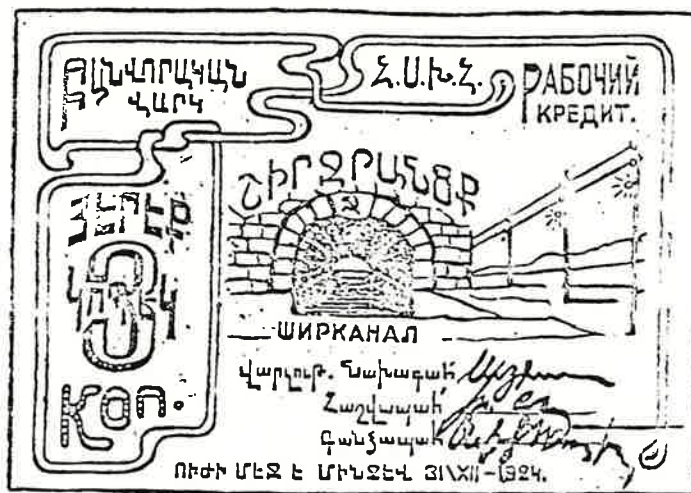 ԲԱՆՎՈՐԱԿԱՆ
ՎԱՐԿ
Հ.Ս.Խ.Հ.
РАБОЧИЙ
КРЕДИТ.
ՇԻՐՋՐԱՆՑՔ
ԵՐԵՔ
3
ԿՈՊԵԿ
КОП.
ШИРКАНАЛ
վարչութ. Նախագահ
Հաշվապահ
Գանձապահ
ՈՒԺԻ ՄԵՋ Է ՄԻՆՉԵՎ 31\XII-1924.